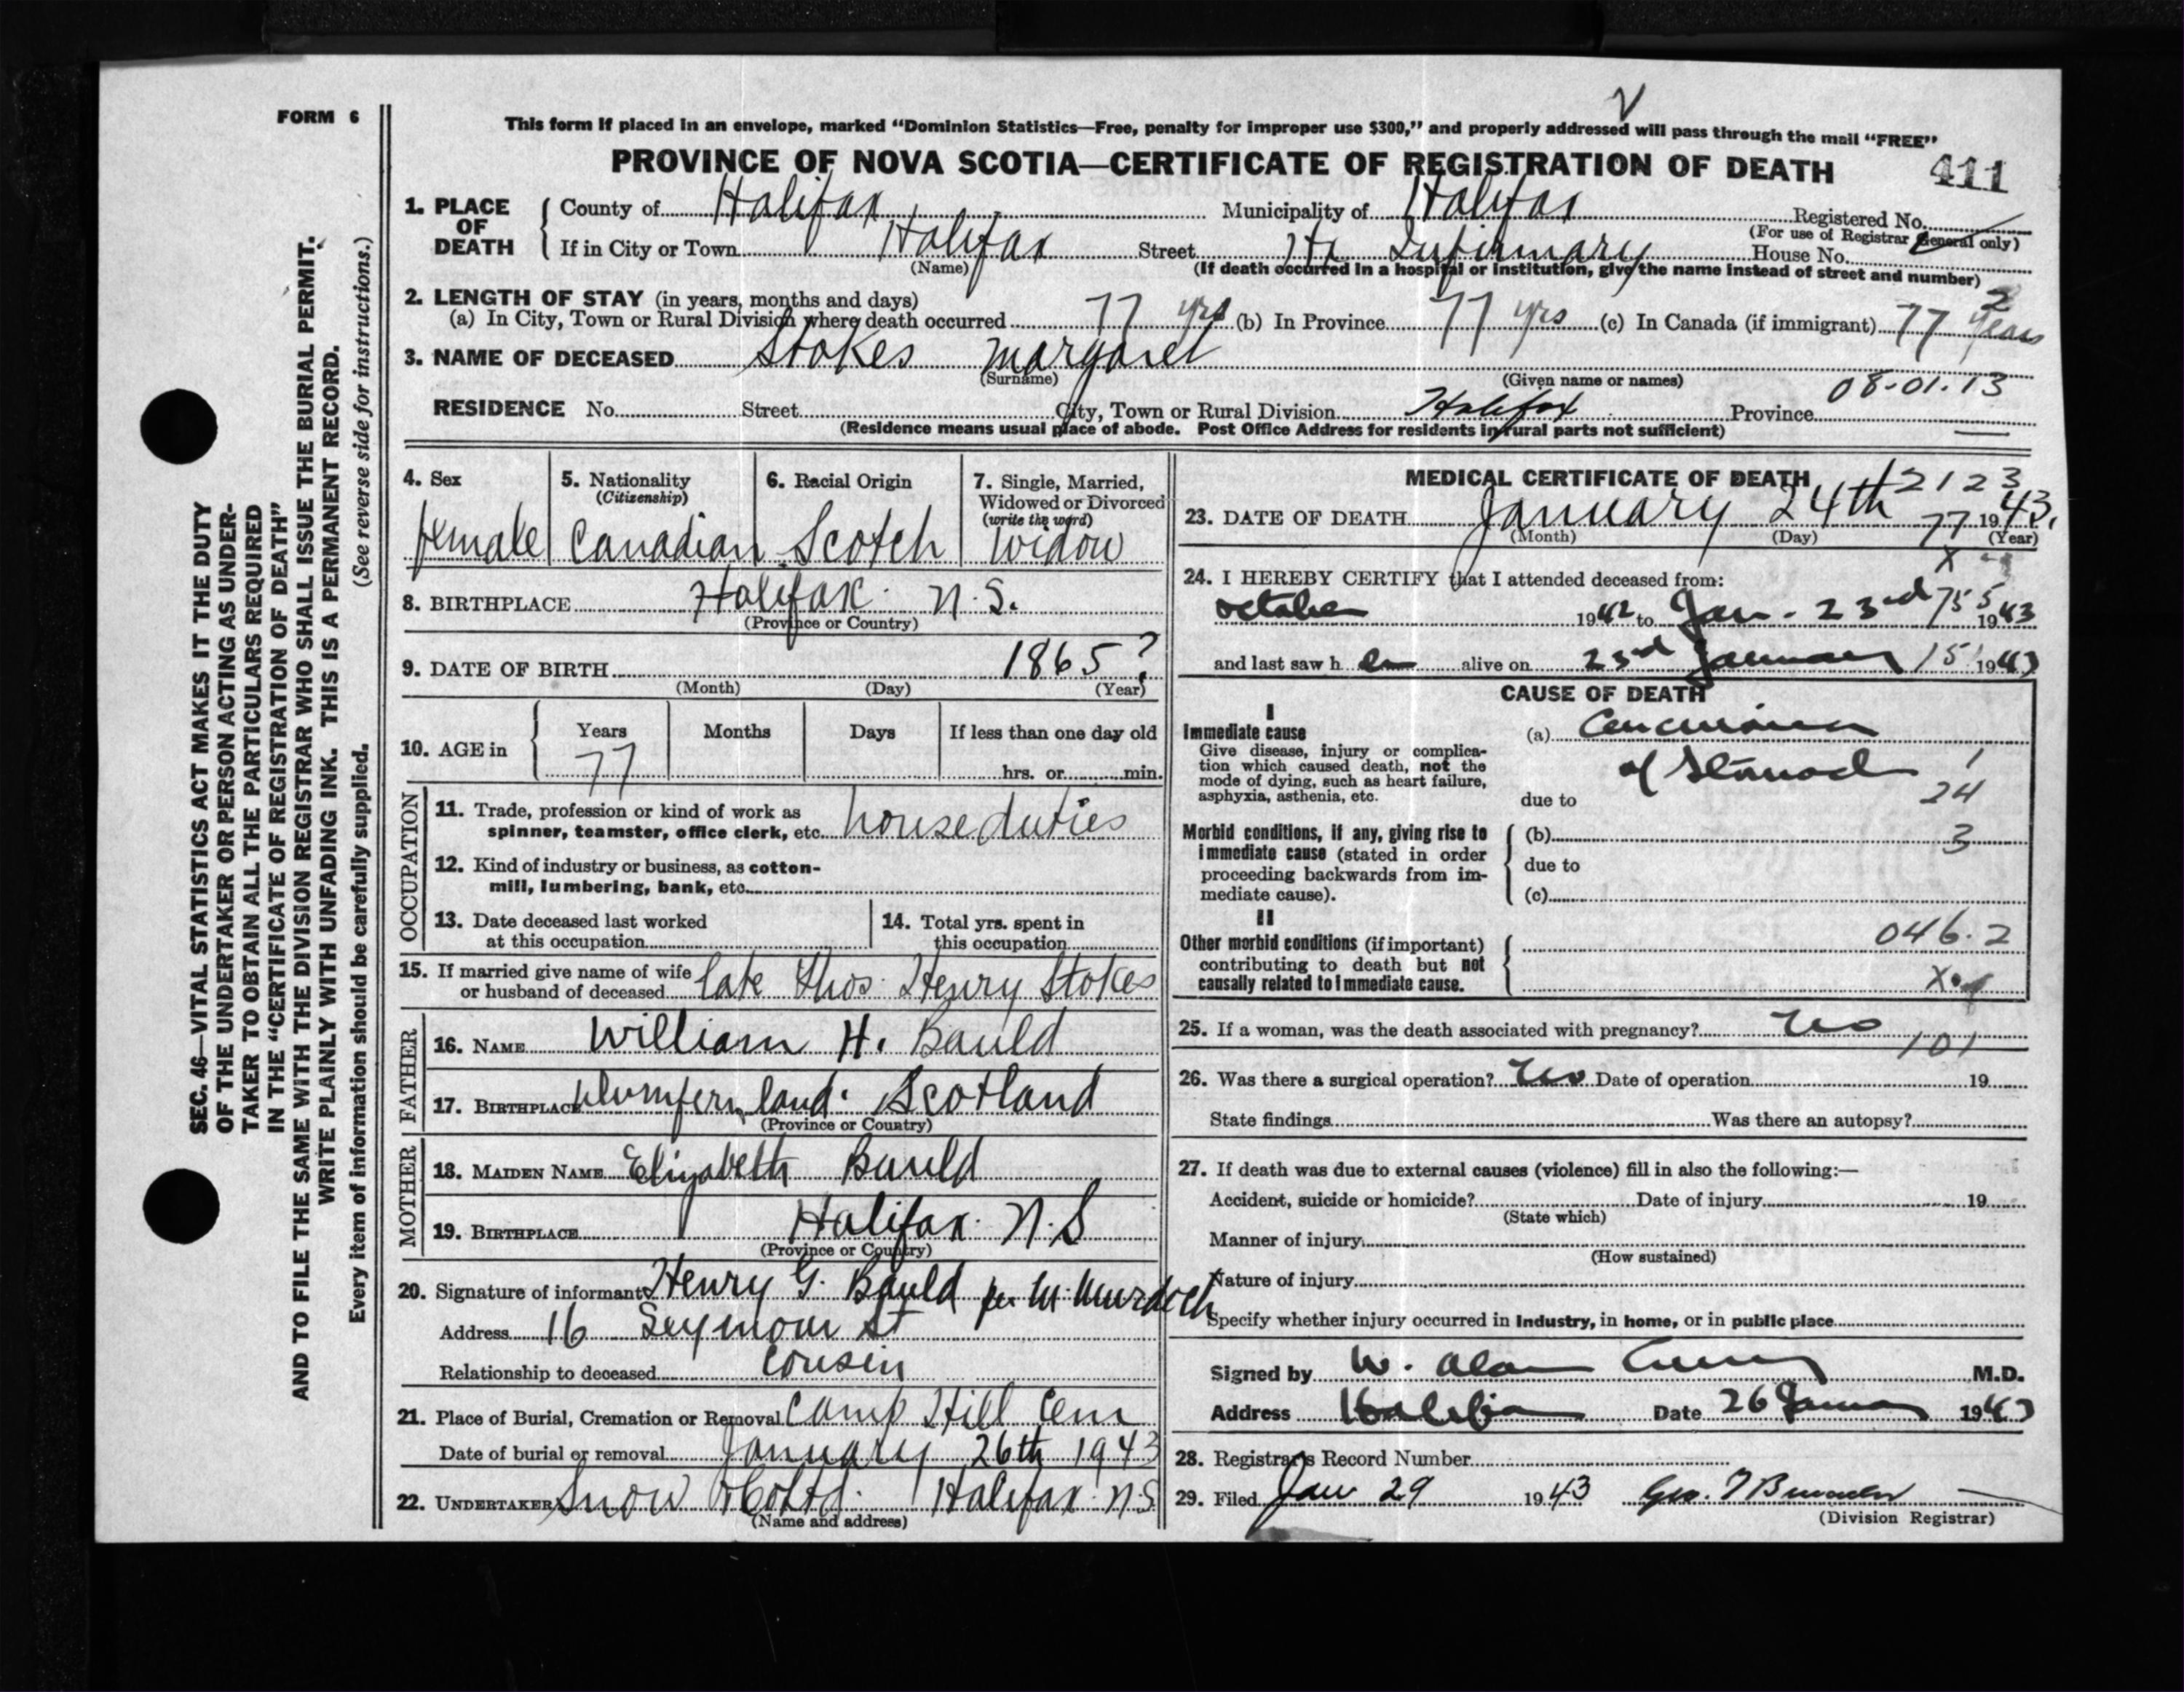 FORM 6
This form if placed in an envelope, marked "Dominion Statistics—Free, penalty for improper use $300," and properly addressed will pass through the mail "FREE"
PROVINCE OF NOVA SCOTIA—CERTIFICATE OF REGISTRATION OF DEATH 411
1. PLACE OF DEATH
County of Halifax Municipality of Halifax Registered No.
(For use of Registrar General only)
If in City or Town Halifax Street Hx Infirmary House No.
(Name) (If death occurred in a hospital or institution, give the name instead of street and number)
2. LENGTH OF STAY (in years, months and days) 2
(a) In City, Town or Rural Division where death occurred 77 yrs (b) In Province 77 yrs (c) In Canada (if immigrant) 77 years
3. NAME OF DECEASED Stokes Margaret
(Surname) (Given name or names) 08-01.13
RESIDENCE No. Street City, Town or Rural Division Halifax Province
(Residence means usual place of abode. Post Office Address for residents in rural parts not sufficient)
4. Sex
female
5. Nationality
(Citizenship)
Canadian
6. Racial Origin
Scotch
7. Single, Married,
Widowed or Divorced
(write the word)
Widow
8. BIRTHPLACE Halifax N.S.
(Province or Country)
9. DATE OF BIRTH 1865?
(Month) (Day) (Year)
10. AGE in
Years Months Days If less than one day old
77 hrs. or min.
OCCUPATION
11. Trade, profession or kind of work as
spinner, teamster, office clerk, etc. house duties
12. Kind of industry or business, as cotton-
mill, lumbering, bank, etc.
13. Date deceased last worked
at this occupation
14. Total yrs. spent in
this occupation
15. If married give name of wife
or husband of deceased late Thos. Henry Stokes
FATHER
16. NAME William H. Bauld
17. BIRTHPLACE Scotland
(Province or Country)
MOTHER
18. MAIDEN NAME Elizabeth Bauld
19. BIRTHPLACE Halifax N.S
(Province or Country)
20. Signature of informant Henry G. Bauld per M. Murdoch
Address 16 Seymour St
Relationship to deceased cousin
21. Place of Burial, Cremation or Removal Camp Hill Cem
Date of burial or removal January 26th 1943
22. UNDERTAKER Snow & Co Ltd. Halifax N.S.
(Name and address)
MEDICAL CERTIFICATE OF DEATH
12123
23. DATE OF DEATH January 24th 1943.
77
(Month) (Day) (Year)
X
24. I HEREBY CERTIFY that I attended deceased from:
October 1942 to Jan. 23rd 1943
755
and last saw h er alive on 23rd January 1943
15
CAUSE OF DEATH
I
Immediate cause
Give disease, injury or complica-
tion which caused death, not the
mode of dying, such as heart failure,
asphyxia, asthenia, etc.
(a) Carcinoma
of Stomach 1
due to 24
Morbid conditions, if any, giving rise to
immediate cause (stated in order
proceeding backwards from im-
mediate cause).
(b) 3
due to
(c)
II
Other morbid conditions (if important)
contributing to death but not
causally related to immediate cause.
046.2
25. If a woman, was the death associated with pregnancy? no
101
26. Was there a surgical operation? no Date of operation 19
State findings Was there an autopsy?
27. If death was due to external causes (violence) fill in also the following:—
Accident, suicide or homicide? Date of injury 19
(State which)
Manner of injury
(How sustained)
Nature of injury
Specify whether injury occurred in industry, in home, or in public place
Signed by W. Alan M.D.
Address Halifax Date 26 January 1943
28. Registrar's Record Number
29. Filed Jan 29 1943 Geo.
(Division Registrar)
SEC. 46—VITAL STATISTICS ACT MAKES IT THE DUTY
OF THE UNDERTAKER OR PERSON ACTING AS UNDER-
TAKER TO OBTAIN ALL THE PARTICULARS REQUIRED
IN THE "CERTIFICATE OF REGISTRATION OF DEATH"
AND TO FILE THE SAME WITH THE DIVISION REGISTRAR WHO SHALL ISSUE THE BURIAL PERMIT.
WRITE PLAINLY WITH UNFADING INK. THIS IS A PERMANENT RECORD.
Every item of information should be carefully supplied. (See reverse side for instructions.)